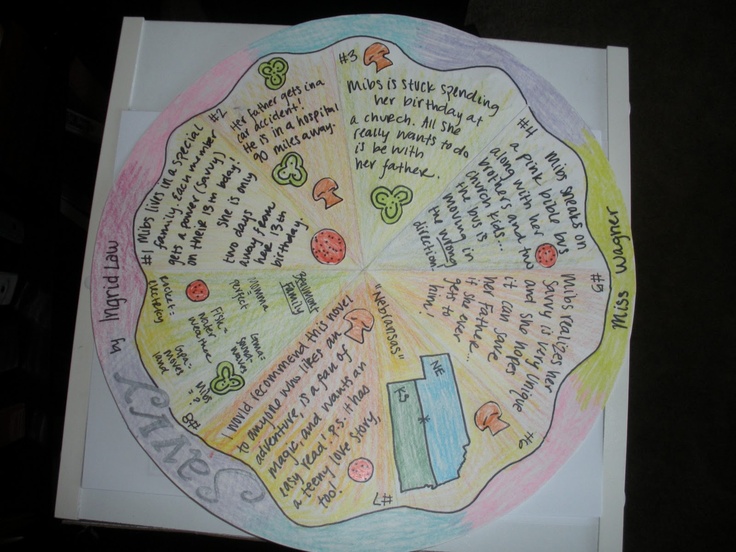 Savvy
by Ingrid Law
Miss Wagner
#1 Mibs lives in a special
family. Each member
gets a power (savvy)
on their 13th bday!
She is only
two days
away from
her 13th
birthday.
#2
Her father gets in a
car accident!
He is in a hospital
90 miles away.
#3
Mibs is stuck spending
her birthday at
a church. All she
really wants to do
is be with
her father.
#4
Mibs sneaks on
a pink bible bus
along with her
brothers and two
church kids...
the bus is
moving in
the wrong
direction.
#5
Mibs realizes her
savvy is very unique
and she hopes
it can save
her father...
if she ever
gets to
him!
#6
"Nebransas"
NE
KS
#7
I would recommend this novel
to anyone who likes an
adventure, is a fan of
magic, and wants an
easy read! P.S. it has
a teeny love story,
too!
#8
Beaumont
Family
Momma=
perfect
Gma=
sound
waves
Fish=
water
weather
Gpa=
moves
land
Rocket=
electricity
Mibs
= ?